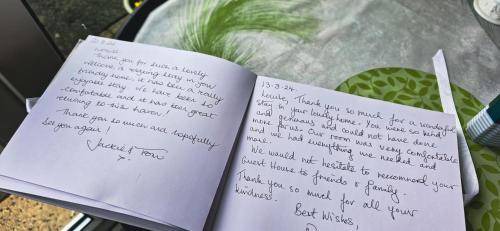 Thank you for such a lovely
welcome, a relaxing stay in your
friendly home, it has been a really
enjoyable stay. We have been so
comfortable and it has been great
returning to this haven!
Thank you so much and hopefully
See you again!
Jackie &
x
13-8-24.
Louise, Thank you so much for a wonderful
stay in your lovely home. You were so kind
and generous and could not have done
more for us. Our room was very comfortable
and we had everything we needed and
more.
We would not hesitate to recommend your
Guest House to friends & family.
Thank you so much for all your
kindness.
Best Wishes,